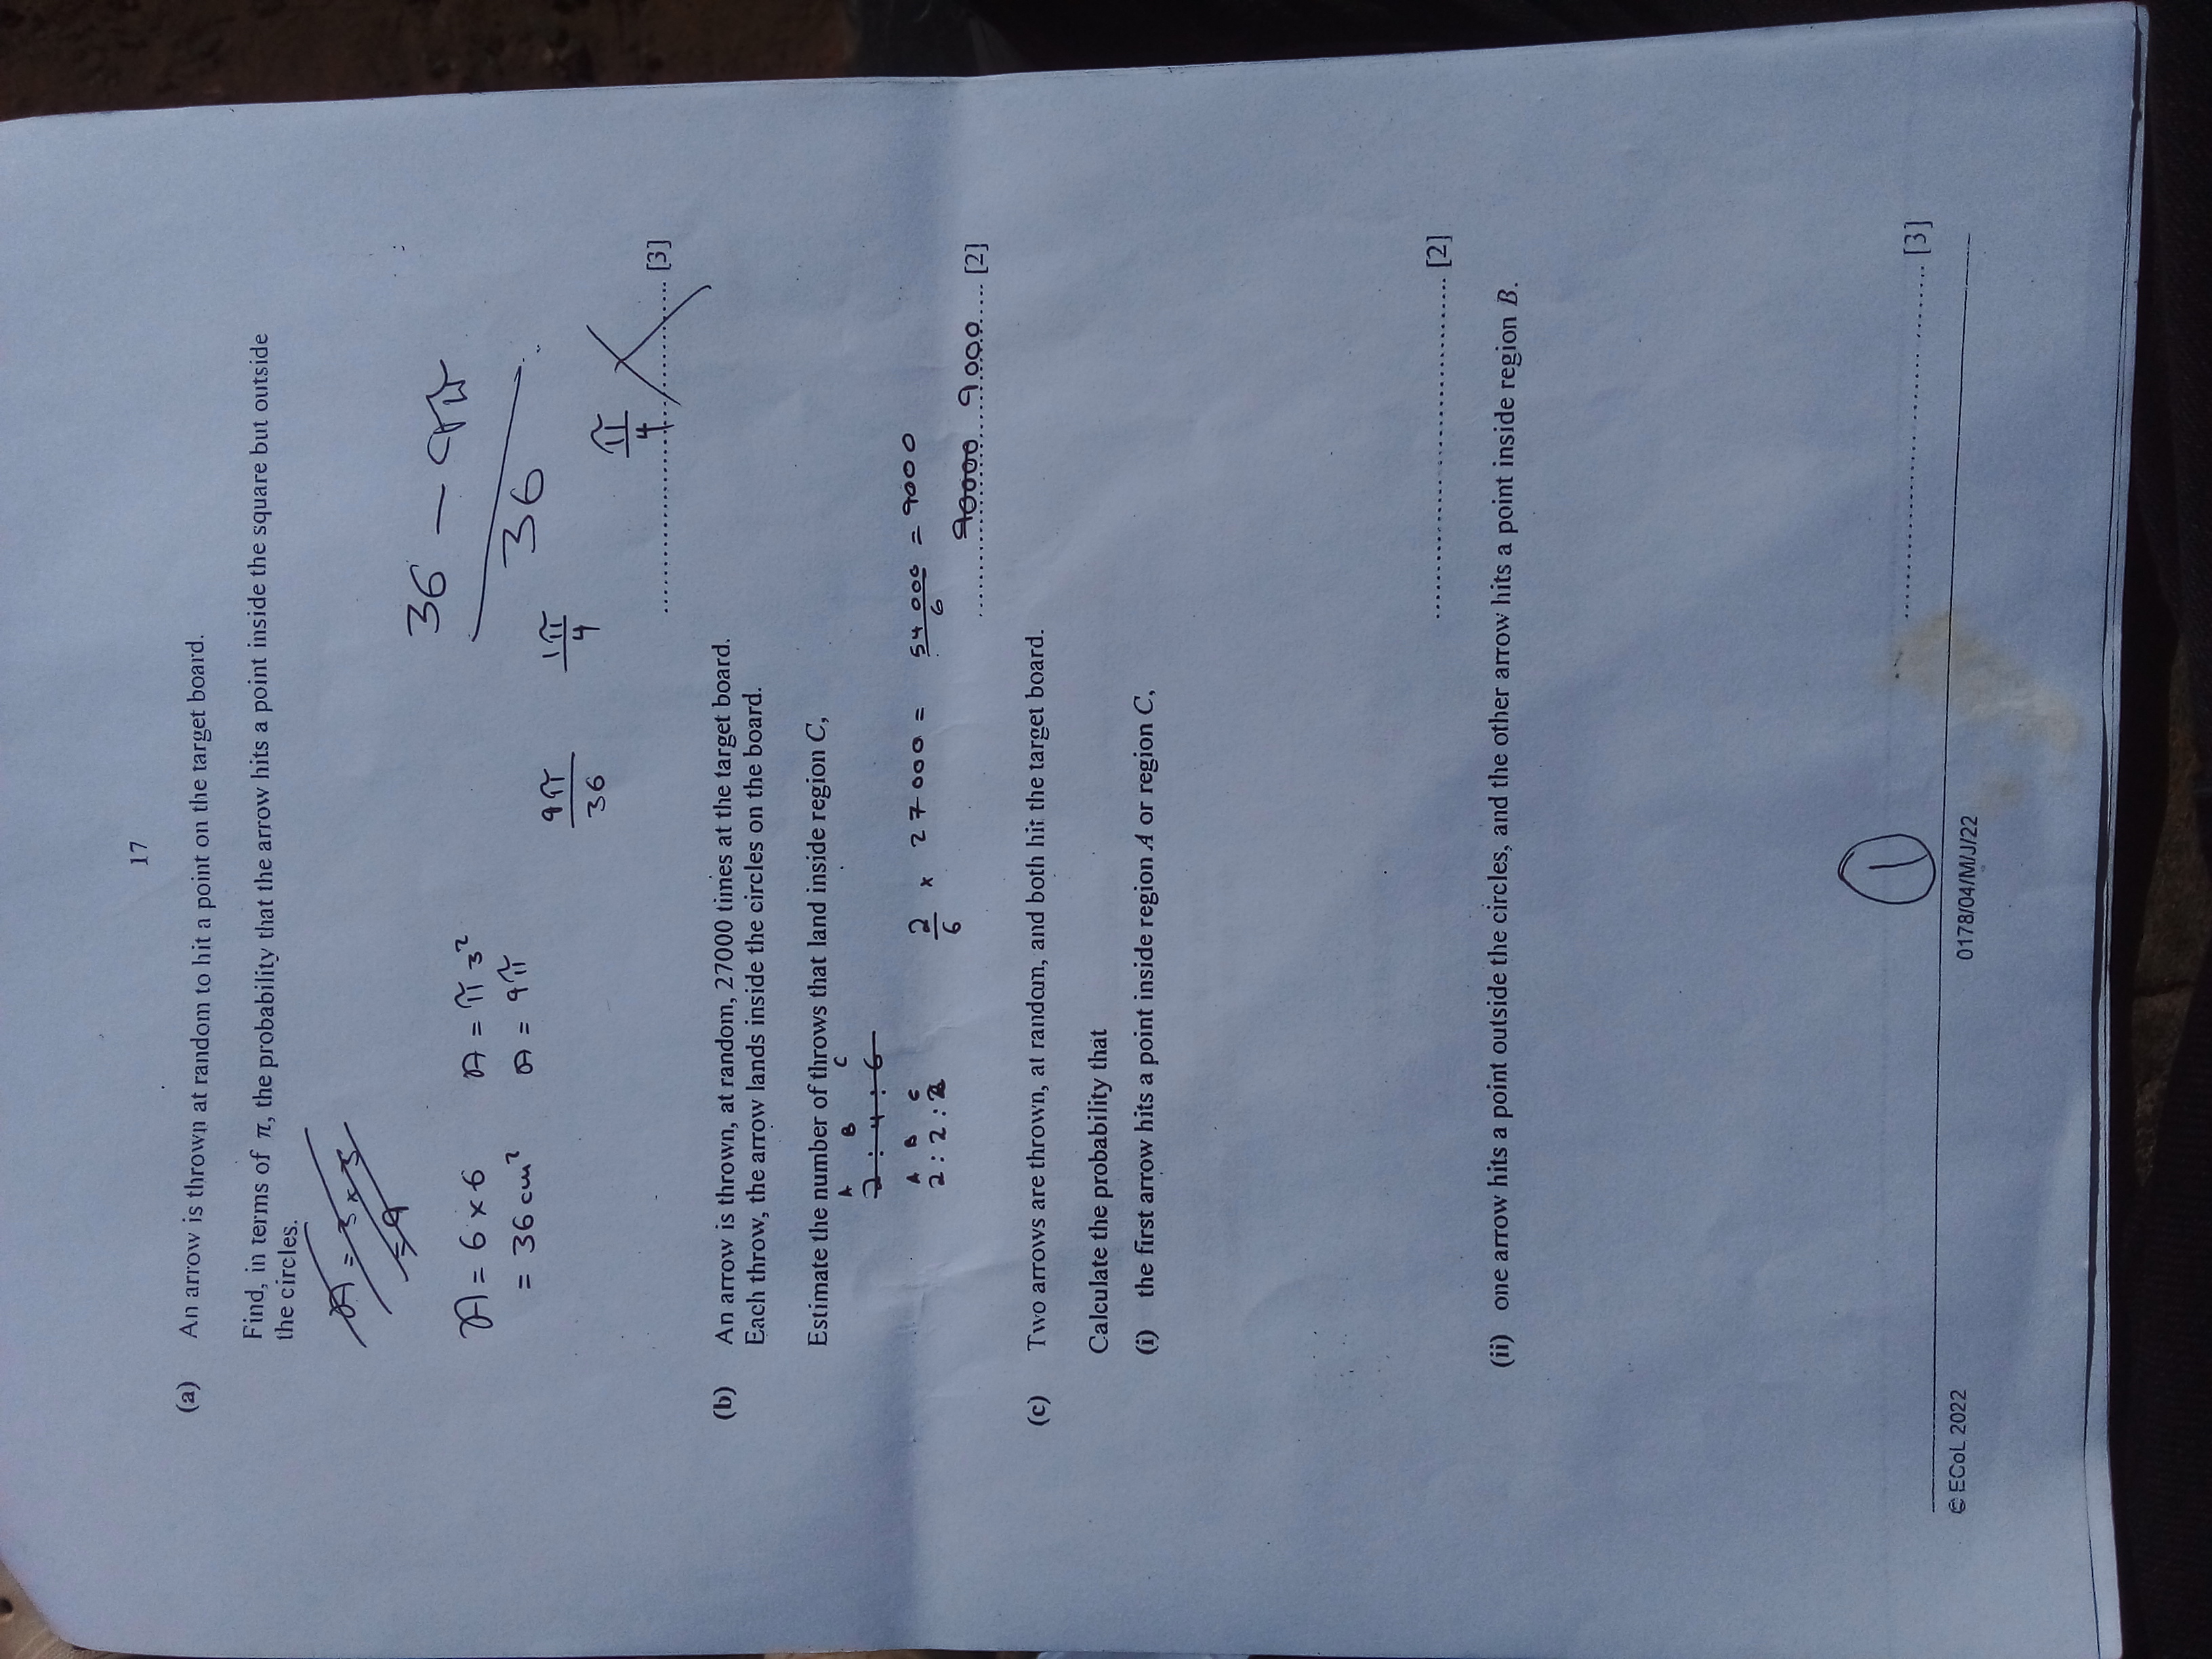 17
(a) An arrow is thrown at random to hit a point on the target board.
Find, in terms of π, the probability that the arrow hits a point inside the square but outside
the circles.
A = 3 x 3
= 9
36 - 9π
36
A = 6 x 6 A = π 3²
= 36 cm² A = 9π
9π 1π
36 4
π
4
[3]
(b) An arrow is thrown, at random, 27000 times at the target board.
Each throw, the arrow lands inside the circles on the board.
Estimate the number of throws that land inside region C,
A B C
2 : 4 : 6
A B C
2 : 2 : 2
2/6 x 27 000 = 54 000/6 = 9000
90000 9000 [2]
(c) Two arrows are thrown, at random, and both hit the target board.
Calculate the probability that
(i) the first arrow hits a point inside region A or region C,
[2]
(ii) one arrow hits a point outside the circles, and the other arrow hits a point inside region B.
1
[3]
© ECoL 2022
0178/04/M/J/22